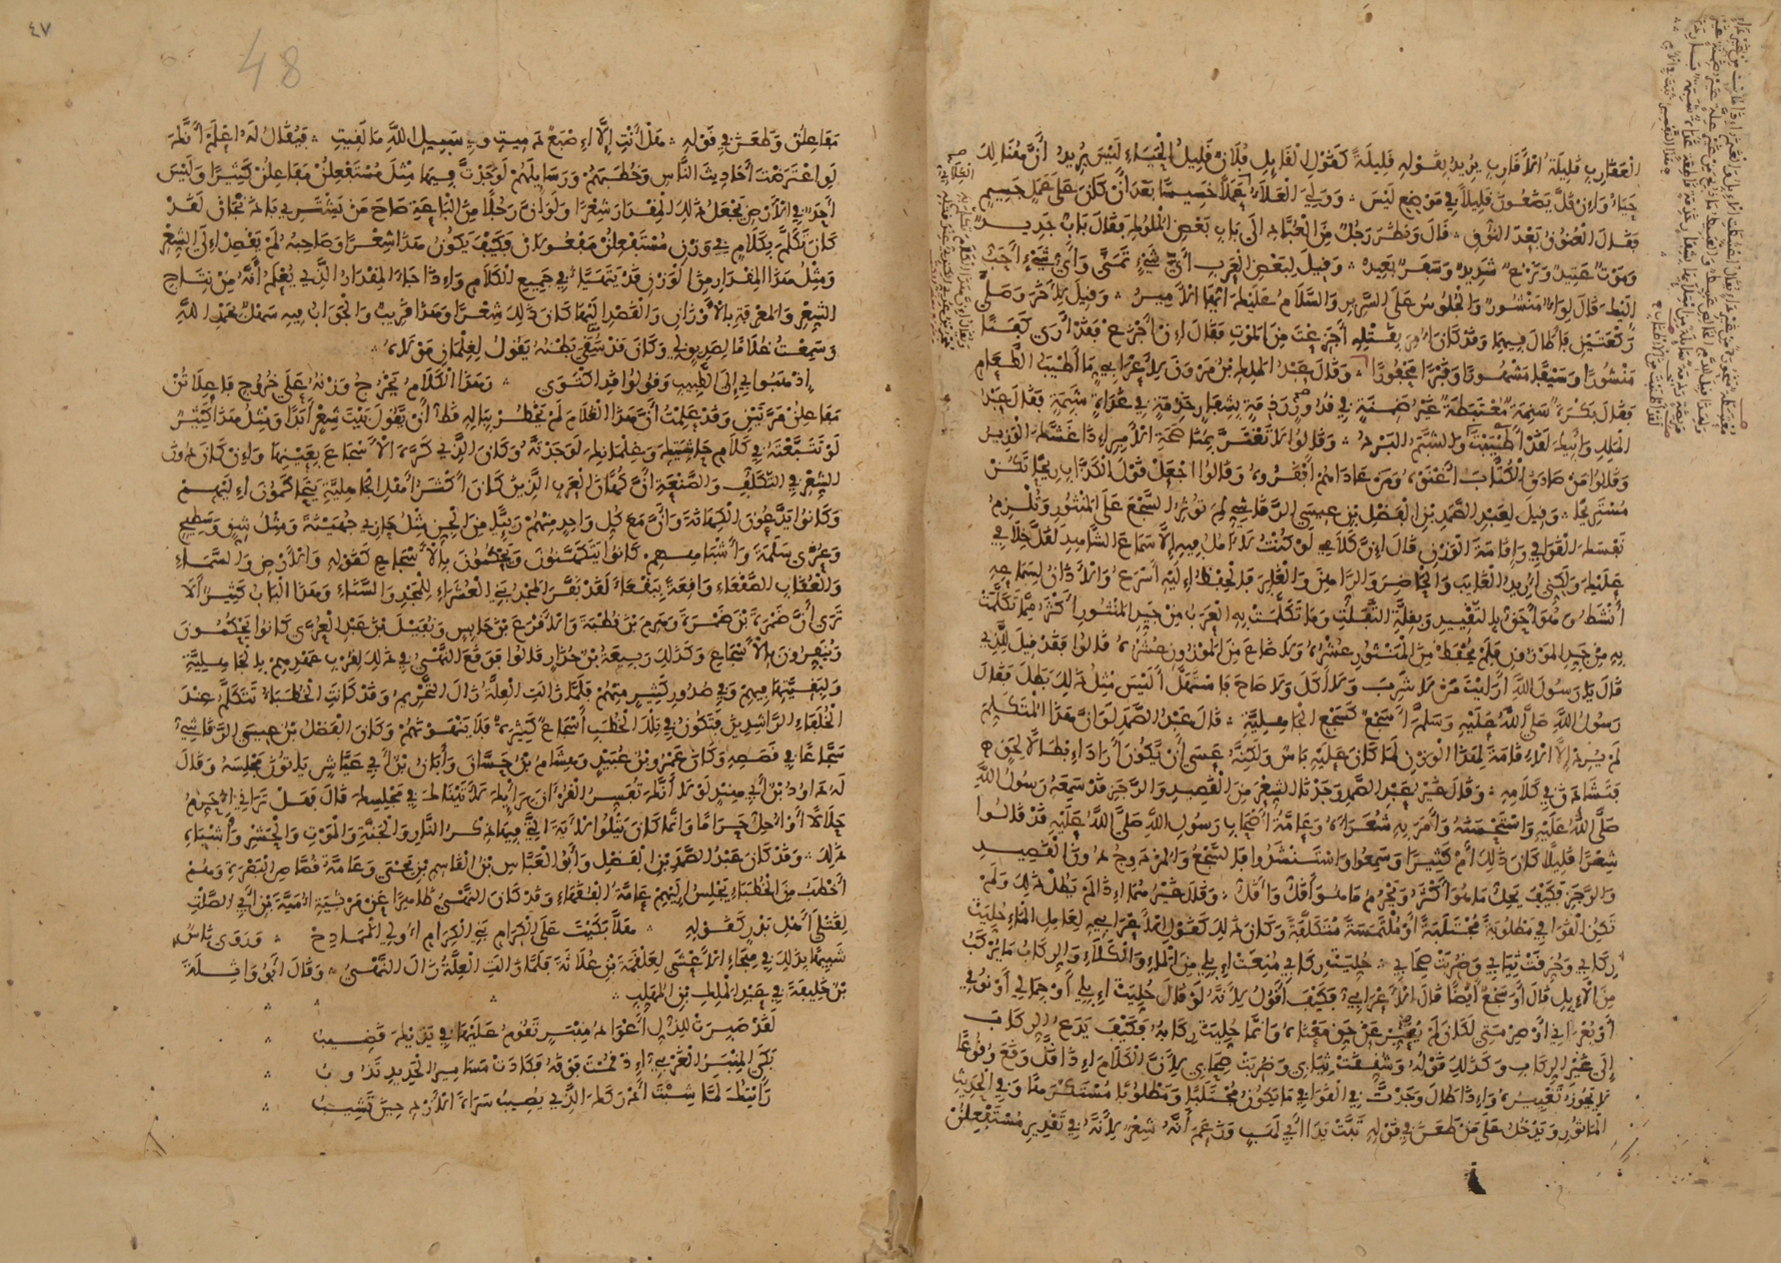 العقارب قليلة الأقارب يريد بقوله قليلة كقول القائل فلان قليل الحياء ليس يريد أن هنالك
حياء وإن قل يضعون قليلا في موضع ليس . وولي العلاء عملا خسيسا بعد أن كان على عمل جسيم
فقال العنوق بعد النوق . قال ونظر رجل من العباد إلى باب بعض الملوك فقال باب جديد
وموت عتيد ونزع شديد وسفر بعيد . وقيل لبعض العرب أي شيء تمنى وأي شيء أحب
إليك قال لواء منشور والجلوس على السرير والسلام عليك أيها الأمير . وقيل لآخر وصلى
ركعتين فأطال فيهما وقد كان أمر بقتله أجزعت من الموت فقال إن أجزع فقد أرى كفنا
منشورا وسيفا مشهورا وقبرا محفورا . وقال عبد الملك بن مروان لأعرابي ما أطيب الطعام
فقال بكرة سنمة معتبطة غير ضمنة في قدور رذمة بشفار خذمة في غداة شبمة فقال عبد
الملك وأبيك لقد أطيبت . وقالوا لا تغتر بمناصحة الأمير إذا غشك الوزير
وقالوا من صادق الكتاب أغنوه ومن عاداهم أفقروه وقالوا اجعل قول الكذاب ريحا تكن
مستريحا . وقيل لعبد الصمد بن الفضل بن عيسى الرقاشي لم تؤثر السجع على المنثور وتلزم
نفسك القوافي وإقامة الوزن قال إن كلامي لو كنت لا آمل فيه إلا سماع الشاهد لقل خلافي
عليك ولكني أريد الغائب والحاضر والراهن والغابر فالحفظ إليه أسرع والآذان لسماعه
أنشط وهو أحق بالتقييد وبقلة التفلت وما تكلمت به العرب من جيد المنثور أكثر مما تكلمت
به من جيد الموزون فلم يحفظ من المنثور عشره ولا ضاع من الموزون عشره قالوا فقد قيل للذي
قال يا رسول الله أرأيت من لا شرب ولا أكل ولا صاح فاستهل أليس مثل ذلك يطل فقال
رسول الله صلى الله عليه وسلم أسجع كسجع الجاهلية . قال عبد الصمد لو أن هذا المتكلم
لم يرد إلا الإقامة لهذا الوزن لما كان عليه بأس ولكنه عسى أن يكون أراد إبطالا لحق
فتشادق في كلامه . وقال غير عبد الصمد وجدنا الشعر من القصيد والرجز قد سمعه رسول الله
صلى الله عليه واستحسنه وأمر به شعراءه وعامة أصحاب رسول الله صلى الله عليه قد قالوا
شعرا قليلا كان ذلك أم كثيرا وسمعوا واستنشدوا فالسجع والمزدوج دون القصيد
والرجز فكيف يحل ما هو أكثر ويحرم ما هو أقل وقال غيرهما إذا لم يطل ذلك ولم
تكن القوافي مطلوبة مجتلبة أو ملتمسة متكلفة وكان ذلك كقول الأعرابي لعامل الماء حلئت
ركابي وخرقت ثيابي وضربت صحابي . حلئت ركابي منعت إبلي من الماء والكلأ والركاب ما يركب
من الإبل قال أو سجع أيضا قال الأعرابي فكيف أقول لأنه لو قال حلئت إبلي أو جمالي أو نوقي
أو بعراني أو صرمتي لكان لم يعبر عن حق معناه وإنما حلئت ركابه فكيف يدع الركاب
إلى غير الركاب وكذلك قوله وشققت ثيابي وضربت صحابي لأن الكلام إذا قل وقع وقوعا
لا يجوز تغييره وإذا طال وجدت في القوافي ما يكون مجتلبا ومطلوبا مستكرها وفي الحديث
المأثور ويدخل على من طعن في قوله تبت يدا أبي لهب وزعم أنه شعر لأنه في تقدير مستفعلن
٤٧
48
مفاعلن وطعن في قوله . هل أنت إلا إصبع دميت وفي سبيل الله ما لقيت . فيقال له اعلم أنك
لو اعترضت أحاديث الناس وخطبهم ورسائلهم لوجدت فيها مثل مستفعلن مفاعلن كثيرا وليس
أحد في الأرض يجعل ذلك المقدار شعرا ولو أن رجلا من الباعة صاح من يشتري باذنجان لقد
كان تكلم بكلام في وزن مستفعلن مفعولان فكيف يكون هذا شعرا وصاحبه لم يقصد إلى الشعر
ومثل هذا المقدار من الوزن قد يتهيأ في جميع الكلام وإذا جاء المقدار الذي يعلم أنه من نتاج
الشعر والمعرفة بالأوزان والقصد إليها كان ذلك شعرا وهذا قريب والجواب فيه سهل بحمد الله
وسمعت غلاما لصديق لي وكان قد سقي بطنه يقول لغلمان مولاه
اذهبوا بي إلى الطبيب وقولوا قد اكتوى . وهذا الكلام يخرج وزنه على خروج فاعلاتن
مفاعلن مرتين وقد علمت أن هذا الغلام لم يخطر بباله قط أن يقول بيت شعر أبدا ومثل هذا كثير
لو تتبعته في كلام حاشيتك وغلمانك لوجدته وكان الذي كره الأسجاع بعينها وإن كان دون
الشعر في التكلف والصنعة أن كهان العرب الذين كان أكثر أهل الجاهلية يتحاكمون إليهم
وكانوا يدعون الكهانة وأن مع كل واحد منهم رئيا من الجن مثل حازي جهينة ومثل شق وسطيح
وعزى سلمة وأشباههم كانوا يتكهنون ويحكمون بالأسجاع كقوله والأرض والسماء
والعقاب الصقعاء واقعة ببقعاء لقد نفر المجد بني العشراء للمجد والسناء وهذا الباب كثير ألا
ترى أن ضمرة بن ضمرة وهرم بن قطبة والأقرع بن حابس ونفيل بن عبد العزى كانوا يحكمون
وينفرون بالأسجاع وكذلك ربيعة بن حذار قالوا فوقع النهي في ذلك لقرب عهدهم بالجاهلية
ولبقيتها فيهم وفي صدور كثير منهم فلما زالت العلة زال التحريم وقد كانت الخطباء تتكلم عند
الخلفاء الراشدين فتكون في تلك الخطب أسجاع كثيرة فلا ينهونهم وكان الفضل بن عيسى الرقاشي
سجاعا في قصصه وكان عمرو بن عبيد وهشام بن حسان وأبان بن أبي عياش يأتون مجلسه وقال
له داود بن أبي هند لولا أنك تفسر القرآن برأيك لأتيناك في مجلسك قال فهل تراني أحرم
حلالا أو أحل حراما وإنما كان يتلو الآية التي فيها ذكر النار والجنة والموت والحشر وأشباه
ذلك . وقد كان عبد الصمد بن الفضل وأبو العباس بن القاسم بن يحيى وعامة قصاص البصرة وهم
أخطب من الخطباء يجلس إليهم عامة الفقهاء وقد كان النهي ظاهرا عن مرثية أمية بن أبي الصلت
لقتلى أهل بدر كقوله . هلا بكيت على الكرام بني الكرام أولي الممادح . وروى ناس
شبيها بذلك في هجاء الأعشى لعلقمة بن علاثة فلما زالت العلة زال النهي . وقال أبو واثلة
بن خليفة في عبد الملك بن المهلب
لقد صبرت للذل أعواد منبر تقوم عليها في يديك قضيب
بكى المنبر الغربي إذ قمت فوقه فكادت مسامير الحديد تذوب
رأيتك لما شبت أدركك الذي يصيب سراة الأزد حين تشيب